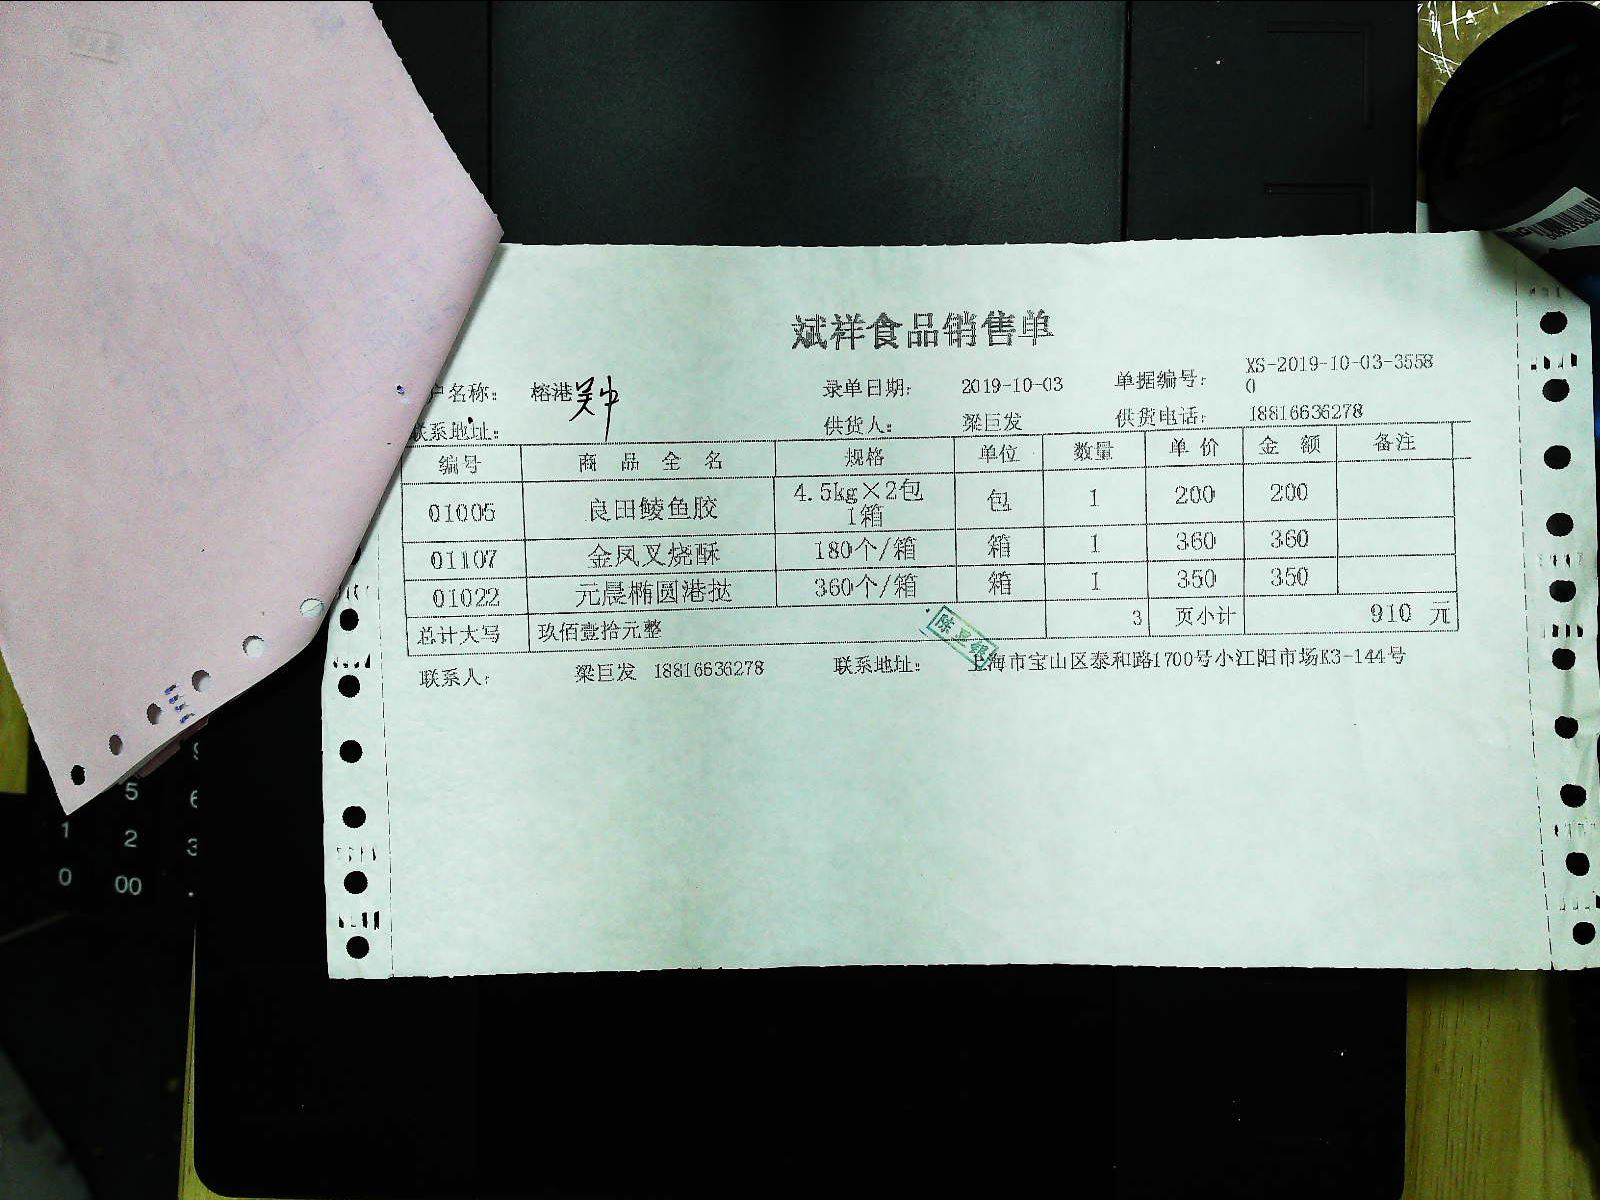 斌祥食品销售单
户名称： 榕港 吴中 录单日期： 2019-10-03 单据编号： XS-2019-10-03-3558
0
联系地址： 供货人： 梁巨发 供货电话： 18816636278
编号 商 品 全 名 规格 单位 数量 单 价 金 额 备注
01005 良田鲮鱼胶 4.5kg×2包 包 1 200 200
1箱
01107 金凤叉烧酥 180个/箱 箱 1 360 360
01022 元晨椭圆港挞 360个/箱 箱 1 350 350
总计大写 玖佰壹拾元整 3 页小计 910 元
联系人： 梁巨发 18816636278 联系地址： 上海市宝山区泰和路1700号小江阳市场K3-144号
5 6
1 2 3
0 00 .